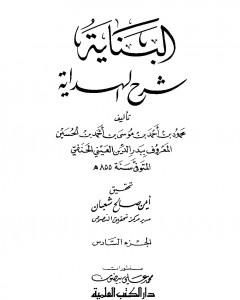 البناية
شرح الهداية
تأليف
محمود بن أحمد بن موسى بن أحمد بن الحسين
المعروف ببدر الدين العيني الحنفي
المتوفى سنة ٨٥٥ هـ
تحقيق
أيمن صالح شعبان
مدير مركز تحقيق النصوص
الجزء السادس
منشورات
محمد علي بيضون
دار الكتب العلمية